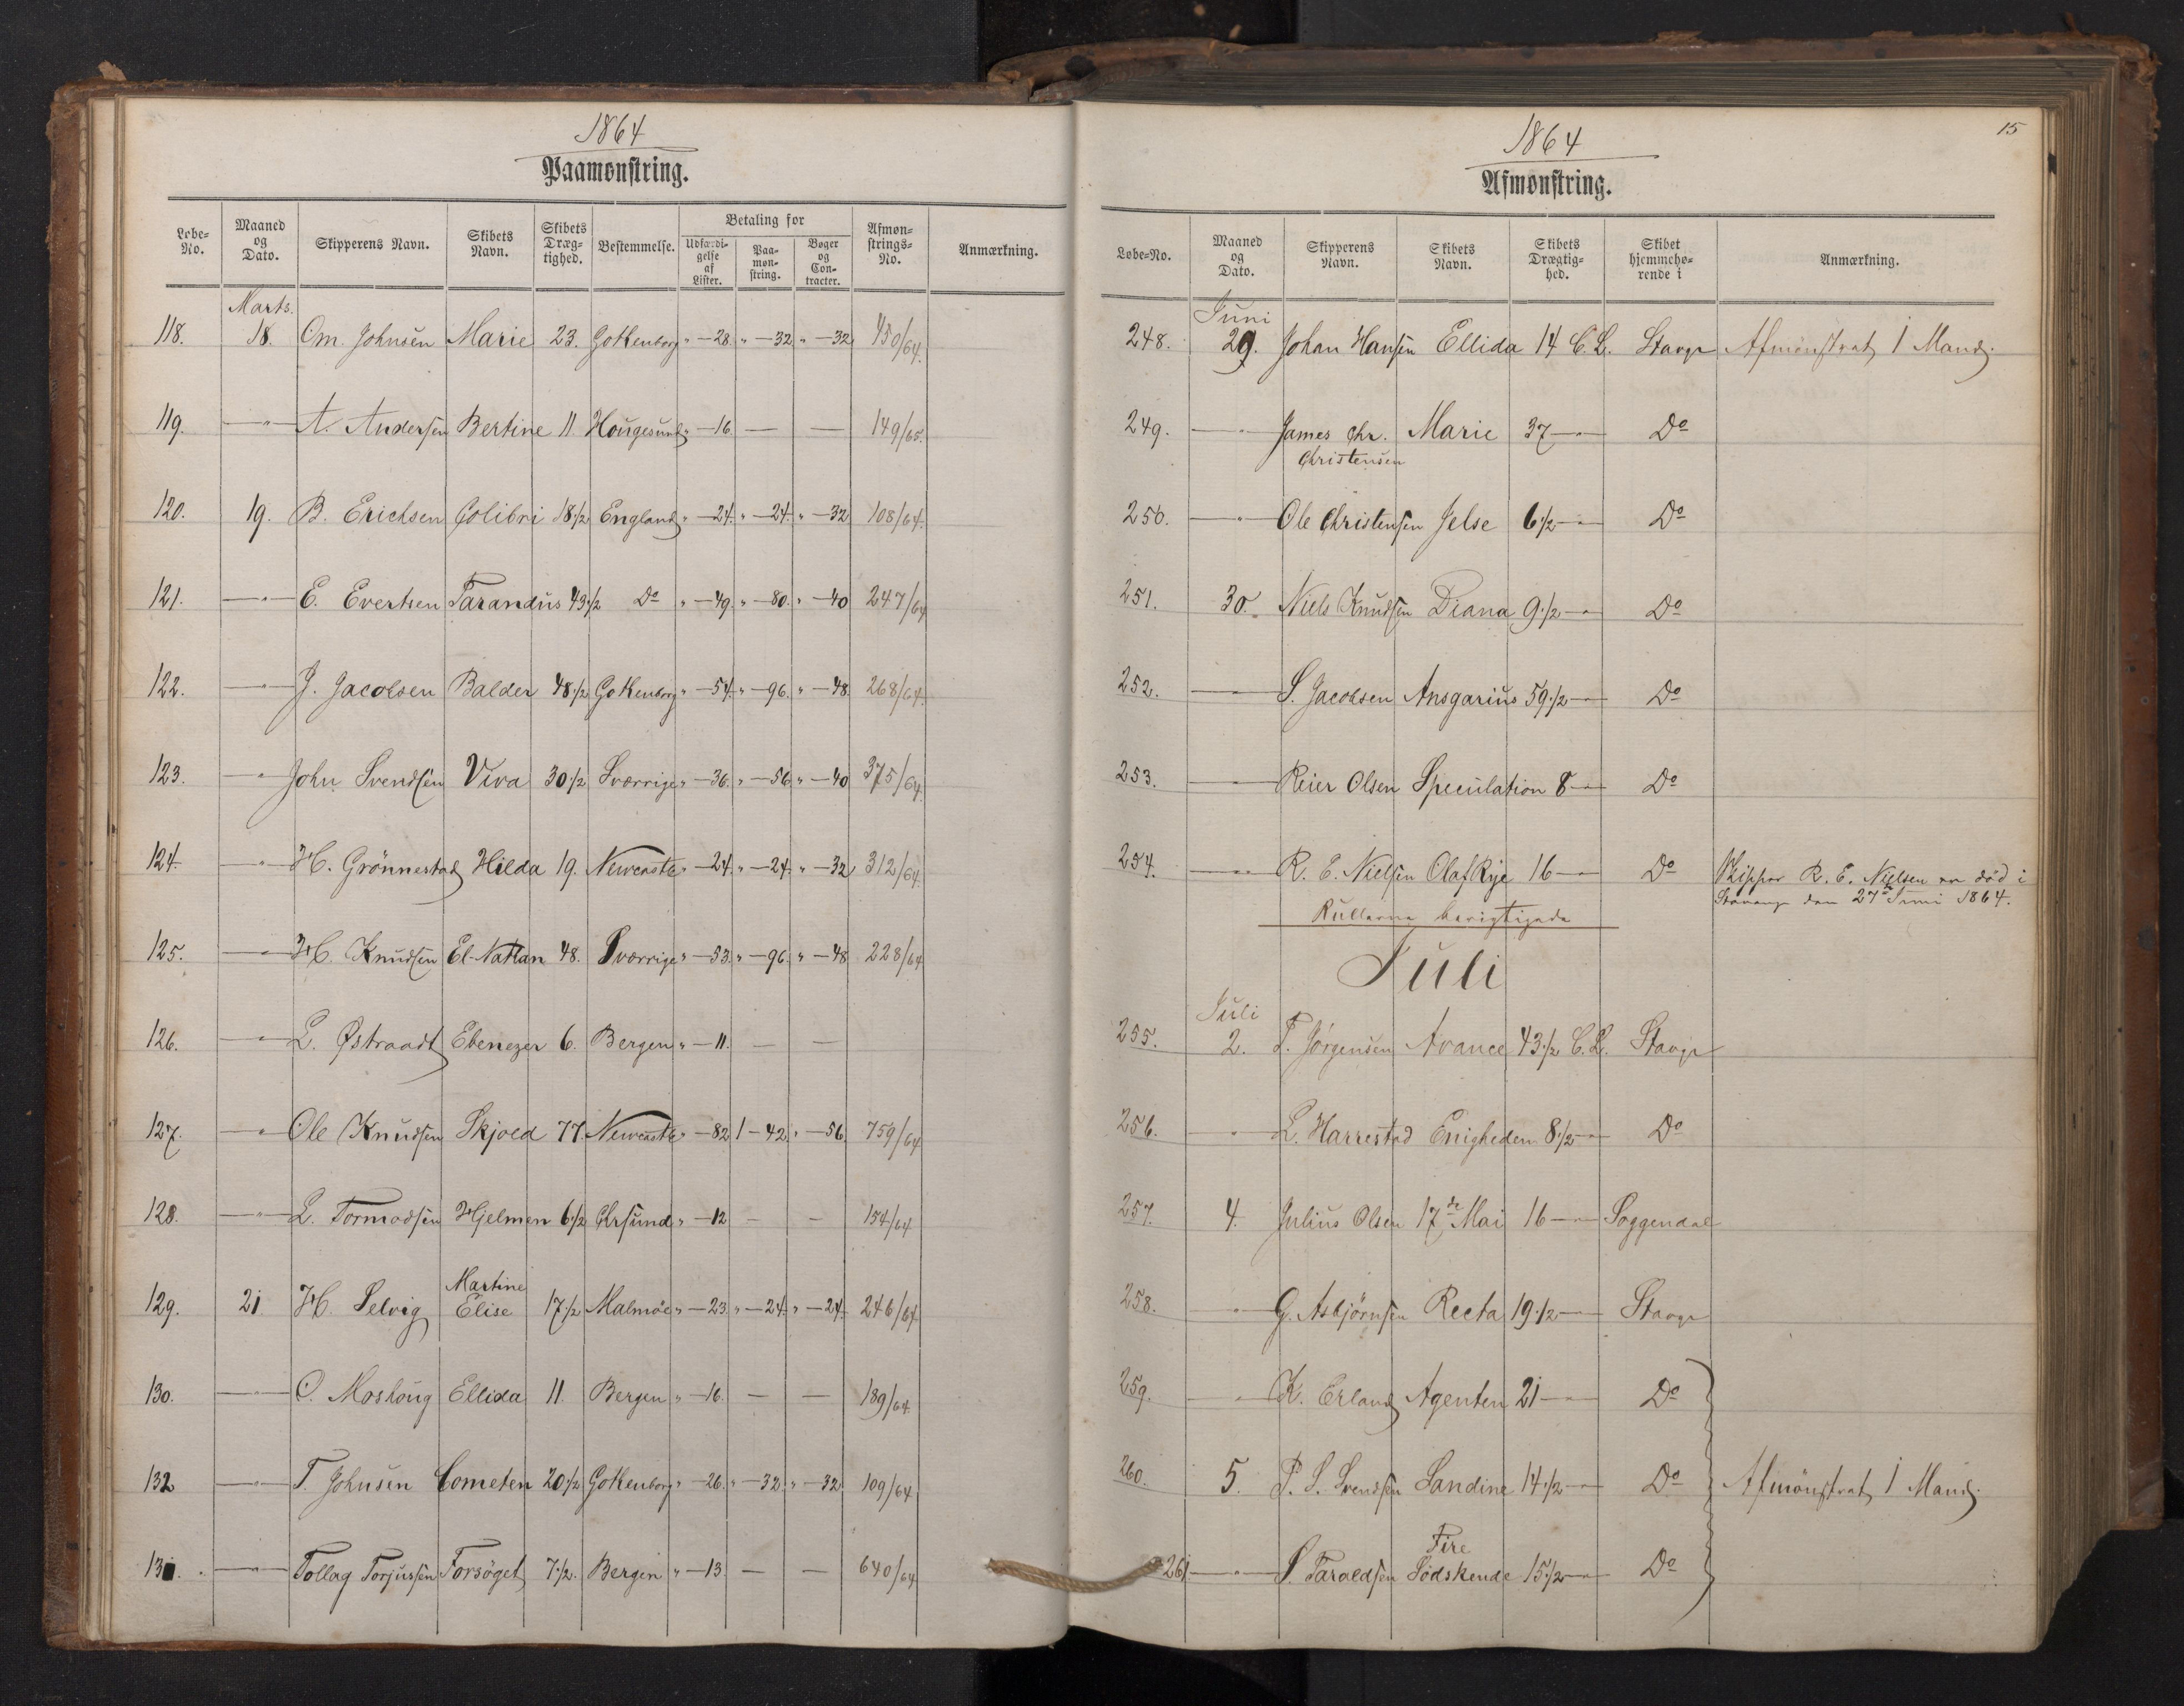 1864
Paamønstring.
Løbe-No. Maaned og Dato. Skipperens Navn. Skibets Navn. Skibets Dræg-tighed. Bestemmelse. Betaling for Udfærdi-gelse af Lister. Paa-møn-string. Bøger og Con-tracter. Afmøn-strings-No. Anmærkning.
Marts.
118. 18. Om. Johnsen Marie 23. Gothenborg " - 28. " - 32 " - 32 450/64.
119. — " — A. Andersen Bertine 11 Hougesund " - 16. — — 149/65.
120. 19. B. Erichsen Colibri 18 1/2 England " - 24. " - 24. " - 32 108/64.
121. — " — E. Evertsen Tarandus 43 1/2 Do " - 49. " - 80. " - 40 247/64
122. — " — J. Jacobsen Balder 48 1/2 Gothenborg " - 54. " - 96. " - 48 268/64.
123. — " — John Svendsen Viva 30 1/2 Sverrige " - 36. " - 56. " - 40 375/64.
124. — " — H. Grönnestad Hilda 19. Newcastle " - 24. " - 24. " - 32 312/64.
125. — " — H. Knudsen El-Nathan 48. Sverrige " - 53. " - 96. " - 48 228/64
126. — " — L. Østraadt Ebenezer 6. Bergen " - 11. — —
127. — " — Ole Knudsen Skjold 77. Newcastle " - 82 1 - 42. " - 56. 759/64
128. — " — L. Tormodsen Hjelmen 6 1/2 Chrsund " - 12 — — 154/64
Martine
129. 21 H. Selvig Elise 17 1/2 Malmöe " - 23. " - 24. " - 24. 246/64.
130. — " — O. Moshoug Ellida 11. Bergen " - 16. — — 189/64
132 — " — T. Johnsen Cometen 20 1/2 Gothenborg " - 26. " - 32. " - 32 109/64
131. — " — Tollag Torjussen Forsöget 7 1/2. Bergen " - 13 — — 640/64
15
1864
Afmønstring.
Løbe-No. Maaned og Dato. Skipperens Navn. Skibets Navn. Skibets Drægtig-hed. Skibet hjemmehø-rende i Anmærkning.
Juni
248. 29. Johan Hansen Ellida 14 C.L. Stavgr Afmönstrat 1 Mand.
249. — " — James Chr. Marie 37 — " — Do
Christensen
250. — " — Ole Christensen Jelse 6 1/2 — " — Do
251. 30. Niels Knudsen Diana 9 1/2 — " — Do
252. — " — S. Jacobsen Ansgarius 59 1/2 — " — Do
253. — " — Reier Olsen Speculation 8 — " — Do
254. — " — R. E. Nielsen Olaf Rye 16 — " — Do Skipper R. E. Nielsen er död i
Stavangr den 27de Juni 1864.
Rullerne berigtigede
Juli
Juli
255. 2. T. Jörgensen Avance 43 1/2 C.L. Stavgr
256. — " — L. Harrestad Enigheden 8 1/2 — " — Do
257. 4. Julius Olsen 17de Mai 16 — " — Soggendal
258. — " — G. Asbjörnsen Recta 19 1/2 — " — Stavgr
259. — " — K. Erland Agenten 21 — " — Do
260. 5. P. S. Svendsen Sandine 14 1/2 — " — Do Afmönstrat 1 Mand.
Fire
261 — " — S. Taraldsen Södskende 15 1/2 — " — Do